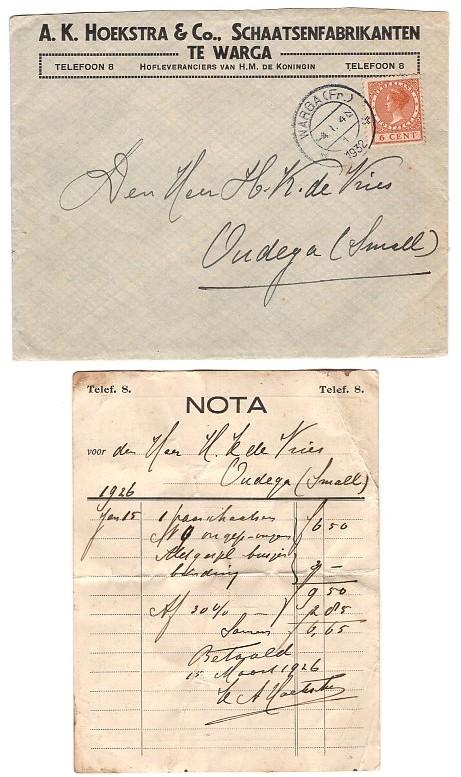 A. K. HOEKSTRA & Co., SCHAATSENFABRIKANTEN
TE WARGA
TELEFOON 8 HOFLEVERANCIERS VAN H.M. DE KONINGIN TELEFOON 8
WARGA (Fr.)
1932
6 CENT
Den Heer H. K. de Vries
Oudega (Small)
Telef. 8. Telef. 8.
NOTA
voor den Heer H. K. de Vries
Oudega (Small)
1926
Jan 15 1 paar schaatsen
N 9 6 50
binding 3 –
9 50
Af 30% 2 85
Samen 6,65
Betaald
15 Maart 1926
A Hoekstra